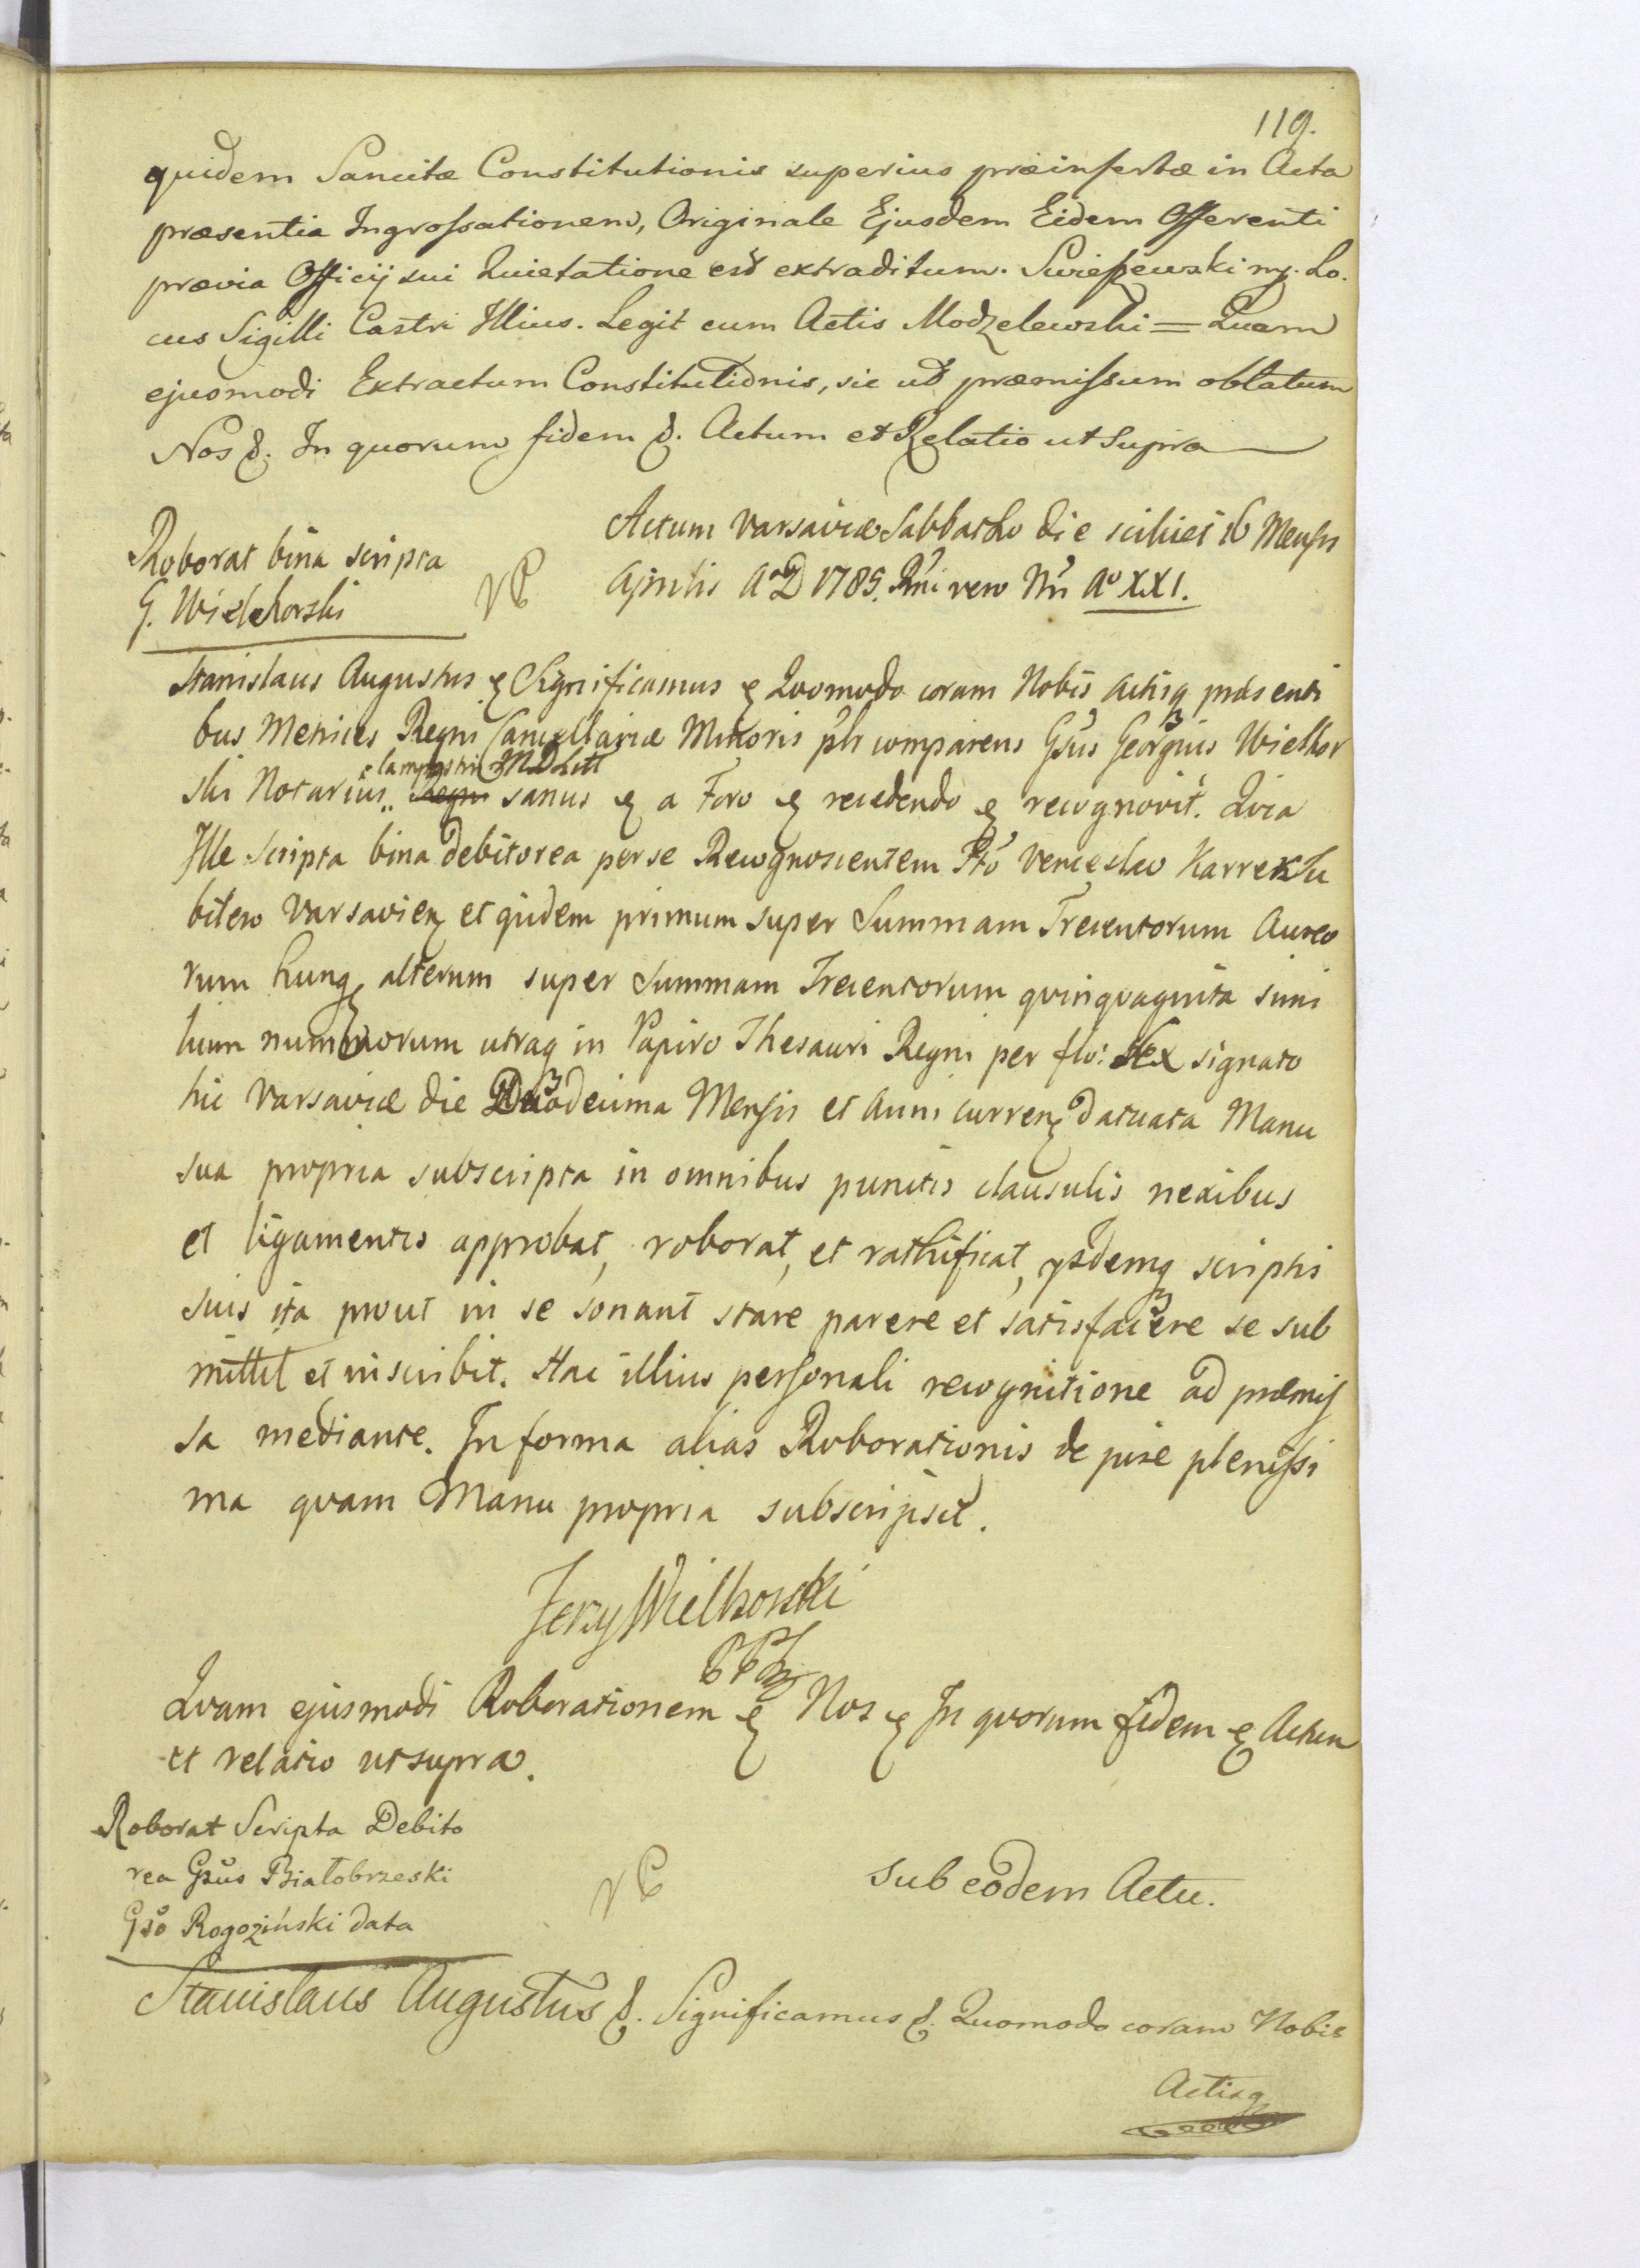 119.
quidem Sancitæ Constitutionis superius præinsertæ in Acta
præsentia Ingrossationem, Originale Ejusdem Eidem Offerenti
prævia Officij sui Quietatione est extraditum. Swieszewski mp. Lo.
cus Sigilli Castri Illius. Legit cum Actis Modzelewski = Quam
ejusmodi Extractum Constitutionis, sic ut præmissum oblatum
Nos &. In quorum fidem &. Actum et Relatio ut Supra
Roborat bina scripta
G. Wielehorski
Actum Varsaviæ Sabbatho die scilicet 16 Mensis
Aprilis A°D 1785. Rni vero Nri A° XXI.
Stanislaus Augustus & Significamus & Quomodo coram Nobis Actisq præsenti
bus Metrices Regni Cancellariæ Minoris plr comparens Gsus Georgius Wielhor
campestris M D Litt
ski Notarius Regni sanus & a Foro & recedendo & recognovit. Quia
Ille Scripta bina debitorea per se Recognoscentem Ftó Venceslao Karrer Su
bitero Varsavien et qidem primum super Summam Trecentorum Aureo
rum hung alterum super Summam Trecentorum quinquaginta simi
lium nummorum utraq in Papiro Thesauri Regni per flo: Sex signato
hic Varsaviæ die Duodecima Mensis et Anni curren datuata Manu
sua propria subscripta in omnibus punctis clausulis nexibus
et ligamentis approbat, roborat, et rathificat, ysdemq scriptis
suis ita prout in se sonant stare parere et satisfacere se sub
mittit et inscribit. Hac illius personali recognitione ad præmis
sa mediante. In forma alias Roborationis de jure plenissi
ma quam Manu propria subscripsit.
Jerzy Wielhorski
Quam ejusmodi Roborationem & Nos & In quorum fidem & Actum
et relatio ut supra.
Roborat Scripta Debito
rea Gsus Białobrzeski
Gso Rogoziński data
Sub eodem Actu.
Stanislaus Augustus &. Significamus &. Quomodo coram Nobis
Actisq